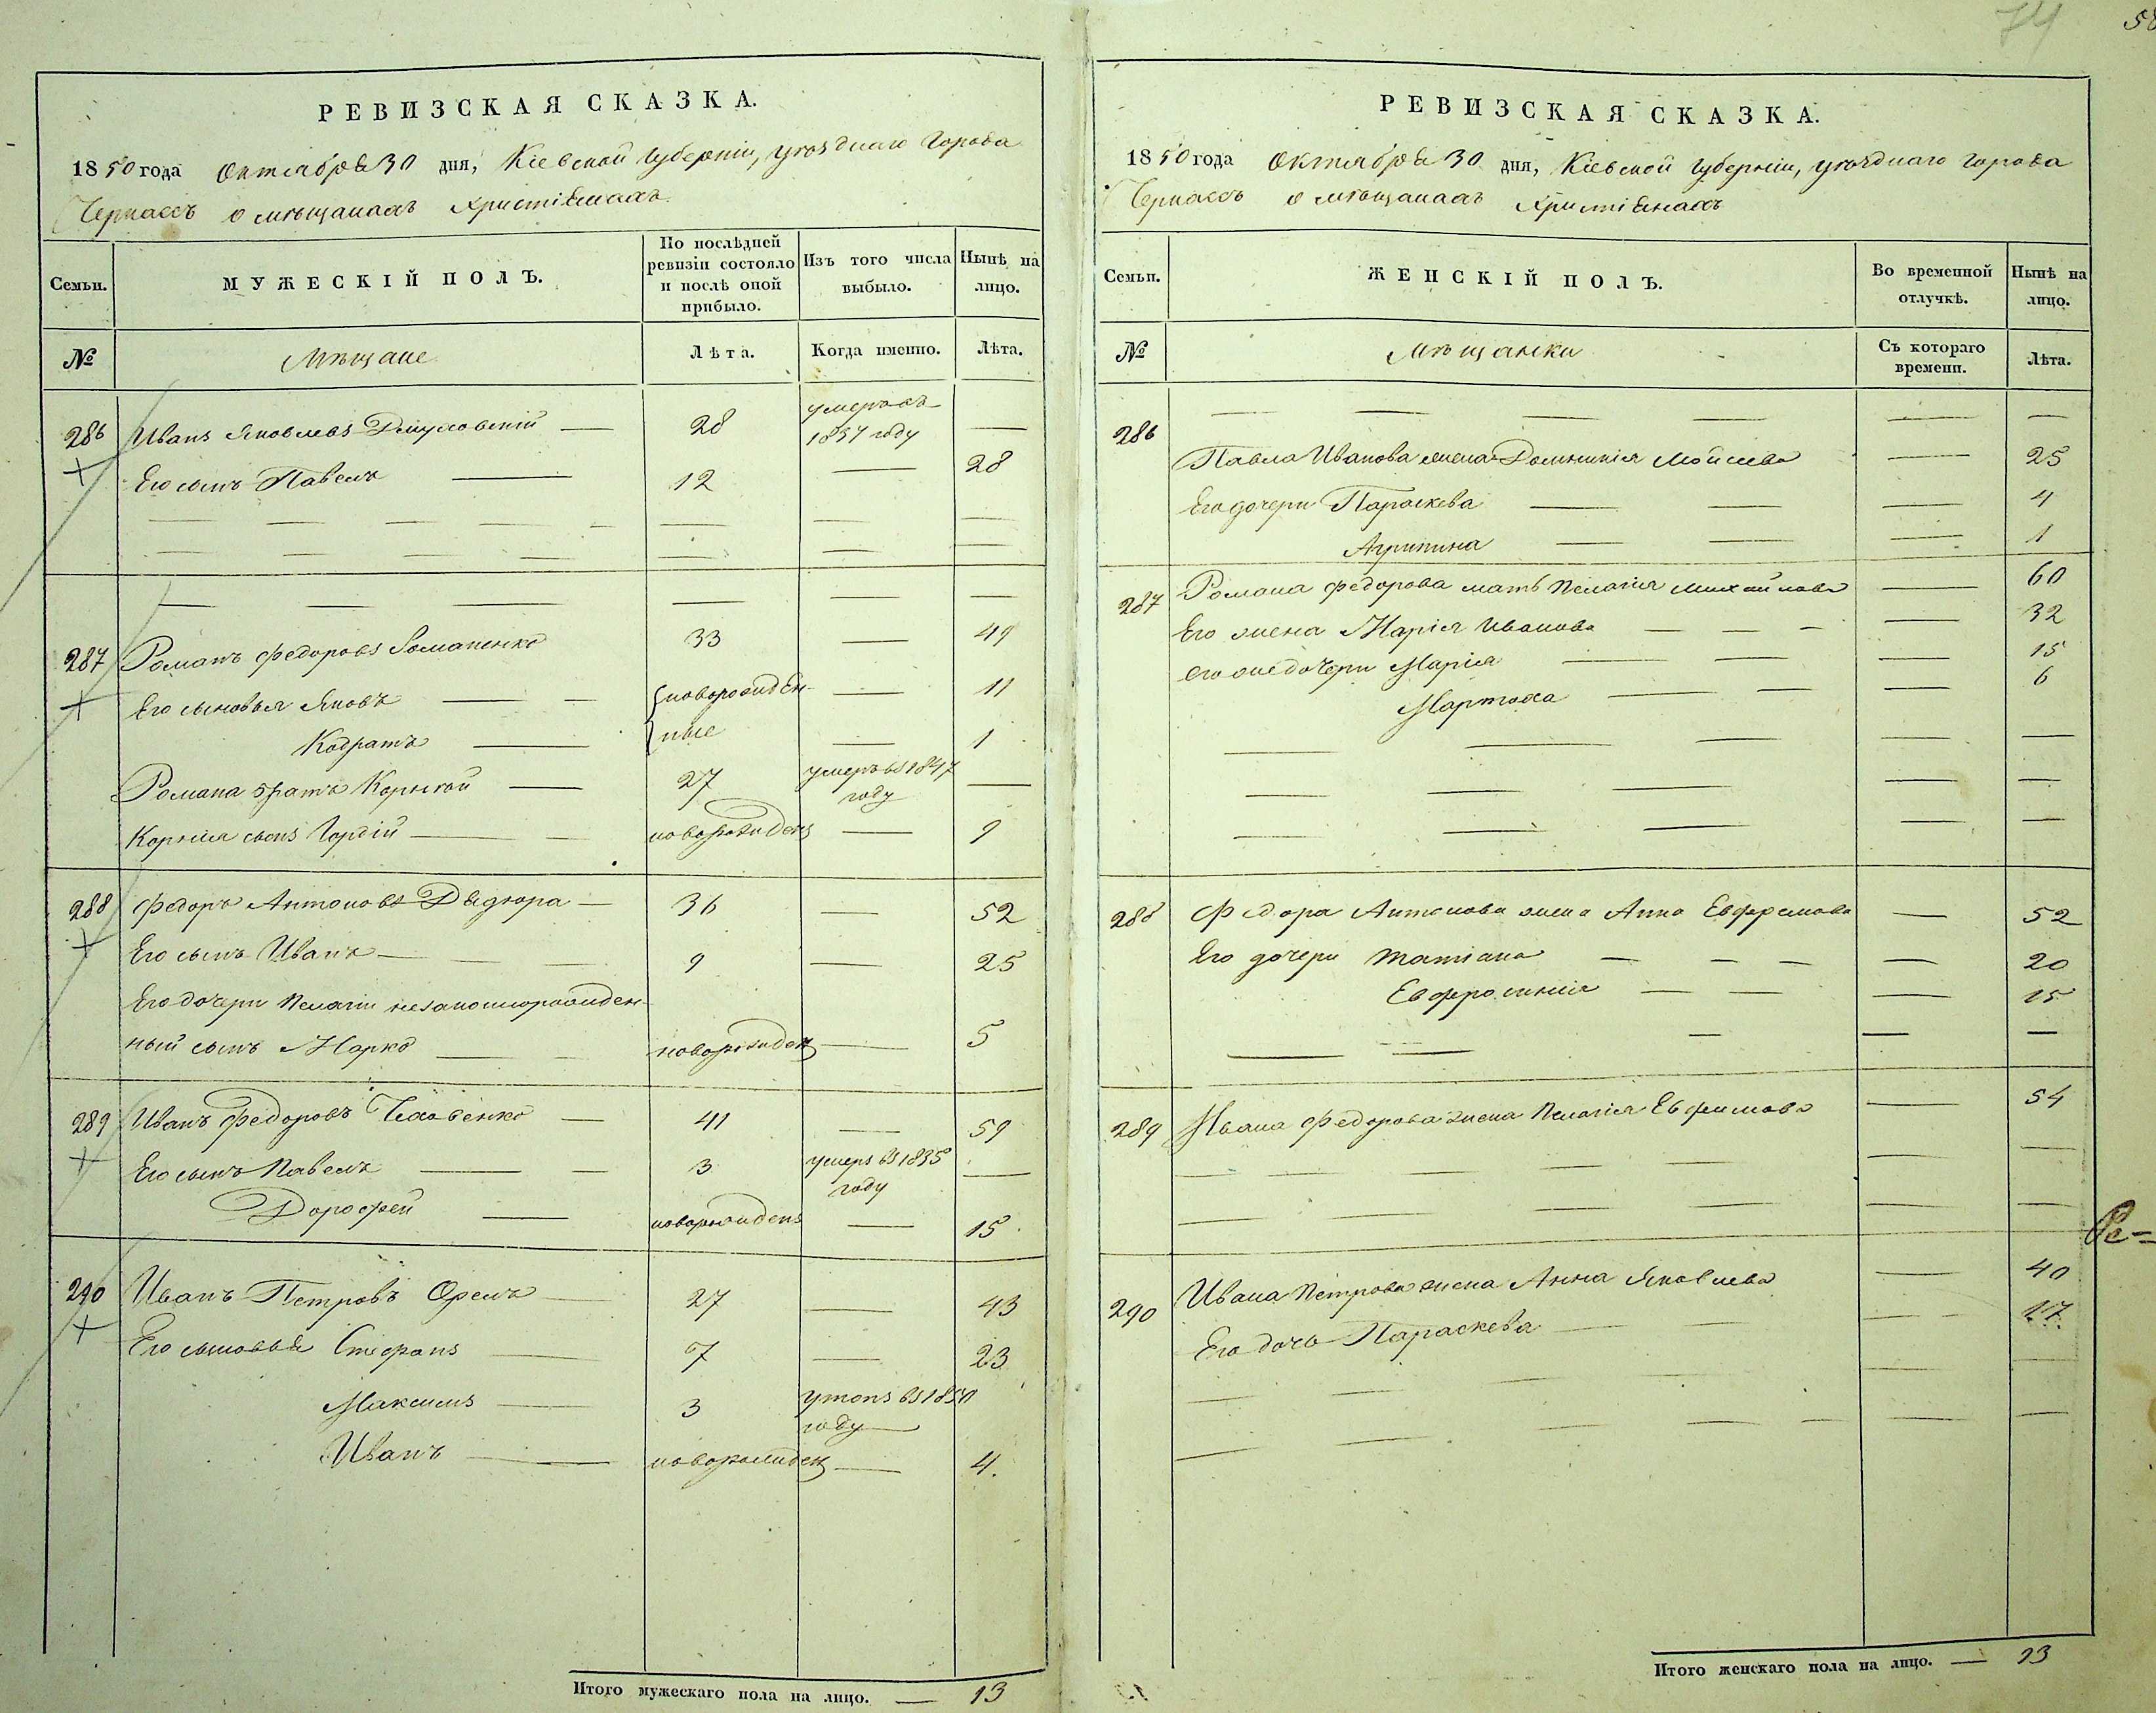 74
58
РЕВИЗСКАЯ СКАЗКА.
1850 года Октября 30 дня, Кіевской Губерніи, уѣзднаго Города
Черкассъ о мѣщанахъ Христіянахъ
Семьи.
МУЖЕСКІЙ ПОЛЪ.
По послѣдней ревизіи состояло и послѣ оной прибыло.
Изъ того числа выбыло.
Нынѣ на лицо.
№
Мѣщане
Лѣта.
Когда именно.
Лѣта.
286 Иванъ Яковлевъ — 28 умеръ въ 1837 году —
Его сынъ Павелъ — 12 — 28
287 Романъ Федоровъ Романенко 33 — 49
Его сыновья Яковъ — новорожден- — 11
Кодратъ — ные — 1
Романа братъ Корнѣй — 27 умеръ въ 1847 году —
Корнія сынъ Гордій — новорожденъ — 9
288 Федоръ Антоновъ Дѣдюра — 36 — 52
Его сынъ Иванъ — 9 — 25
Его дочери Пелагіи незаконнорожден-
ный сынъ Марко — новорожден — 5
289 Иванъ Федоровъ Чховенко — 41 — 59
Его сынъ Павелъ — 3 умеръ въ 1835 году —
Дорофей — новорожденъ — 15
290 Иванъ Петровъ Орелъ — 27 — 43
Его сыновья Стефанъ — 7 — 23
Максимъ — 3 утопъ въ 1850 году —
Иванъ — новорожден — 4.
Итого мужескаго пола на лицо. — 13
РЕВИЗСКАЯ СКАЗКА.
1850 года Октября 30 дня, Кіевской Губерніи, уѣзднаго Города
Черкассъ о мѣщанахъ Христіянахъ
Семьи.
ЖЕНСКІЙ ПОЛЪ.
Во временной отлучкѣ.
Нынѣ на лицо.
№
Мѣщанки
Съ котораго времени.
Лѣта.
286
Павла Иванова жена Домникія Мойсеева — 25
Его дочери Параскева — 4
Агрипина — 1
287 Романа Федорова мать Пелагія Михайлова — 60
Его жена Марія Иванова — 32
его же дочери Марія — 15
Мартоха — 6
288 Федора Антонова жена Анна Ефремова — 52
Его дочери Татіана — 20
Евфросинія — 15
289 Ивана Федорова жена Пелагія Евфимова — 54
290 Ивана Петрова жена Анна Яковлева — 40
Его дочь Параскева — 17.
Ре=
Итого женскаго пола на лицо. — 13